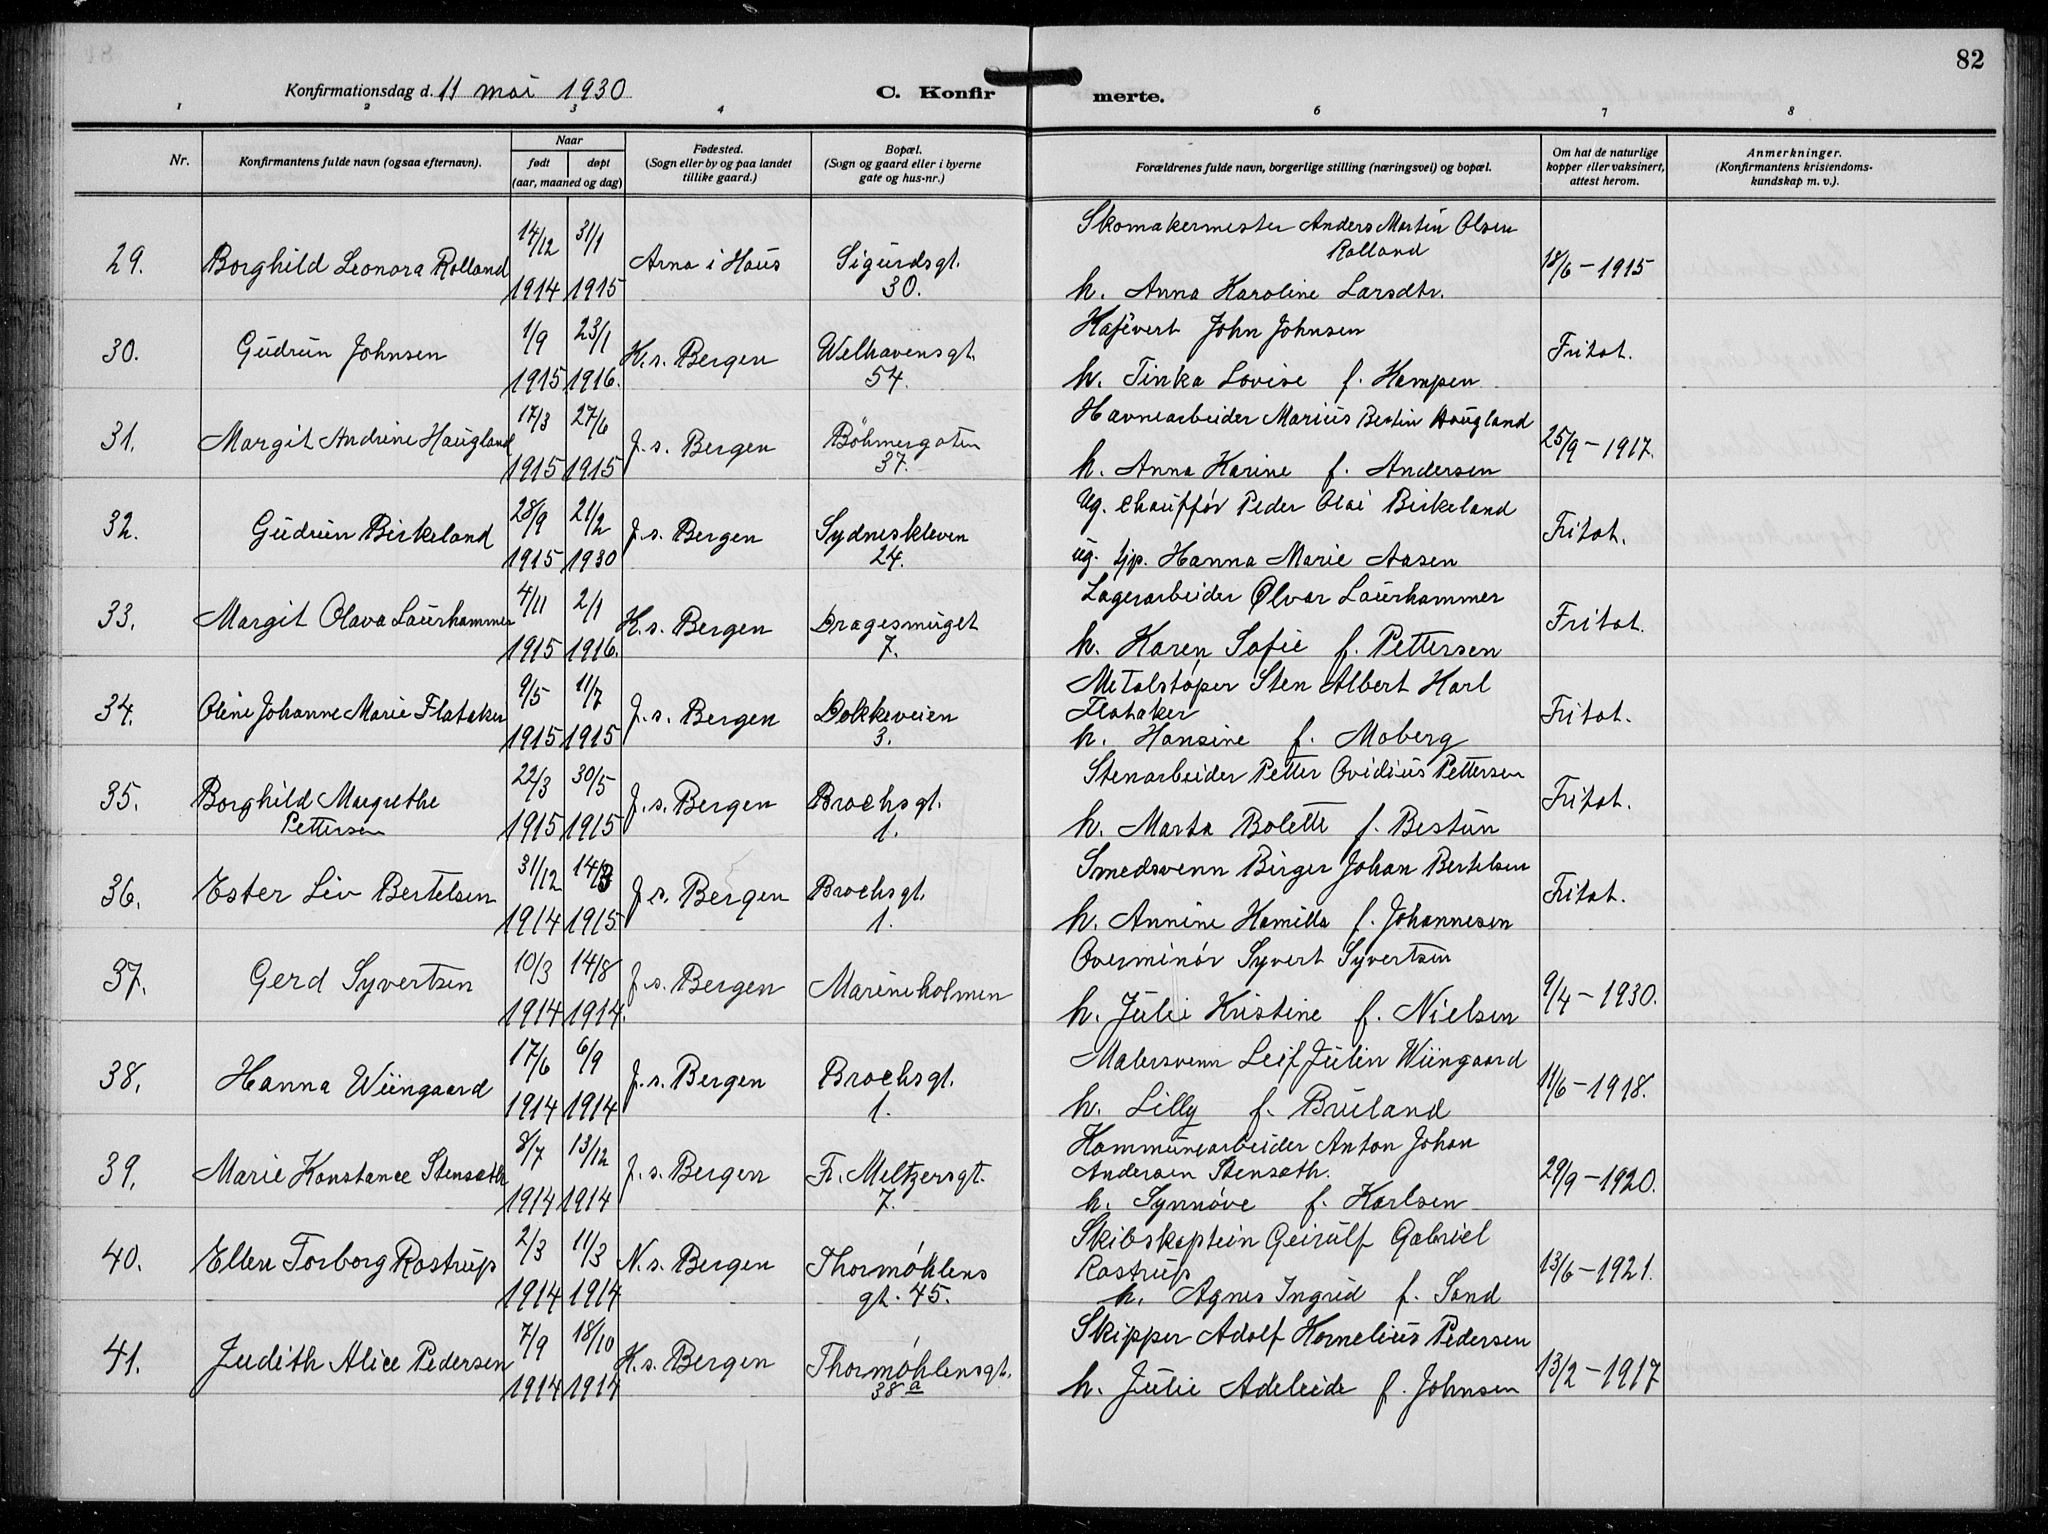 82
Konfirmationsdag d. 11 mai 1930
C. Konfirmerte.
1 2 3 4 6 7 8
Nr.
Konfirmantens fulde navn (ogsaa efternavn).
Naar
født døpt
(aar, maaned og dag)
Fødested.
(Sogn eller by og paa landet
tillike gaard.)
Bopæl.
(Sogn og gaard eller i byerne
gate og hus-nr.)
Forældrenes fulde navn, borgerlige stilling (næringsvei) og bopæl.
Om hat de naturlige
kopper eller vaksinert,
attest herom.
Anmerkninger.
(Konfirmantens kristendoms-
kundskap m. v.).
29. Borghild Leonora Rolland 14/12 1914 31/1 1915 Arna i Haus Sigurdsgt. 30. Skomakermester Anders Martin Olsen
Rolland
h. Anna Karoline Larsdtr. 18/6 - 1915
30. Gudrun Johnsen 1/9 1915 23/1 1916. K.s. Bergen Welhavensgt. 54. Kafévert John Johnsen
h. Tinka Lovise f. Hempen Fritat.
31. Margit Andrine Haugland 17/3 1915 27/6 1915 J.s. Bergen Böhmergaten 37. Havnearbeider Marius Bertin Haugland
h. Anna Karine f. Andersen 25/9 - 1917.
32. Gudrun Birkeland 28/9 1915 21/2 1930 J.s. Bergen Sydneskleven 24. Ug. chauffør Peder Olai Birkeland
ug. tjp. Hanna Marie Aasen Fritat.
33. Margit Olava Laurhammer 4/11 1915 2/1 1916. K.s. Bergen Dragesmuget 7. Lagerarbeider Ølvar Laurhammer
h. Karen Sofie f. Pettersen Fritat.
34. Oline Johanne Marie Flataker 9/5 1915 11/7 1915 J.s. Bergen Dokkeveien 3. Metalstøper Sten Albert Karl
Flataker
h. Hansine f. Moberg Fritat.
35. Borghild Margrethe
Pettersen 22/3 1915 30/5 1915 J.s. Bergen Brochsgt. 1. Stenarbeider Petter Ovidius Pettersen
h. Marta Bolette f. Bestun Fritat.
36. Ester Liv Bertelsen 31/12 1914 14/3 1915 J.s. Bergen Brochsgt. 1. Smedsvenn Birger Johan Bertelsen
h. Annine Kamilla f. Johannesen Fritat.
37. Gerd Syvertsen 10/3 1914 14/8 1914. J.s. Bergen Marineholmen Overminør Syvert Syvertsen
h. Julie Kristine f. Nielsen 9/4 - 1930.
38. Hanna Wiingaard 17/6 1914 6/9 1914 J.s. Bergen Brochsgt. 1. Malersvenn Leif Julin Wiingaard
h. Lilly f. Bruland 11/6 - 1918.
39. Marie Konstance Stensæth 8/7 1914 13/12 1914 J.s. Bergen Fr. Meltzersgt. 7. Kommunearbeider Anton Johan
Andersen Stensæth.
h. Synnøve f. Karlsen 29/9 - 1920.
40. Ellen Torborg Rostrup 2/3 1914 11/3 1914 N.s. Bergen Thormøhlens
gt. 45. Skibskaptein Geirulf Gabriel
Rostrup
h. Agnes Ingrid f. Sand 13/6 - 1921.
41. Judith Alice Pedersen 7/9 1914 18/10 1914 K.s. Bergen Thormøhlensgt. 38 a Skipper Adolf Kornelius Pedersen
h. Julie Adeleide f. Johnsen 13/2 - 1917